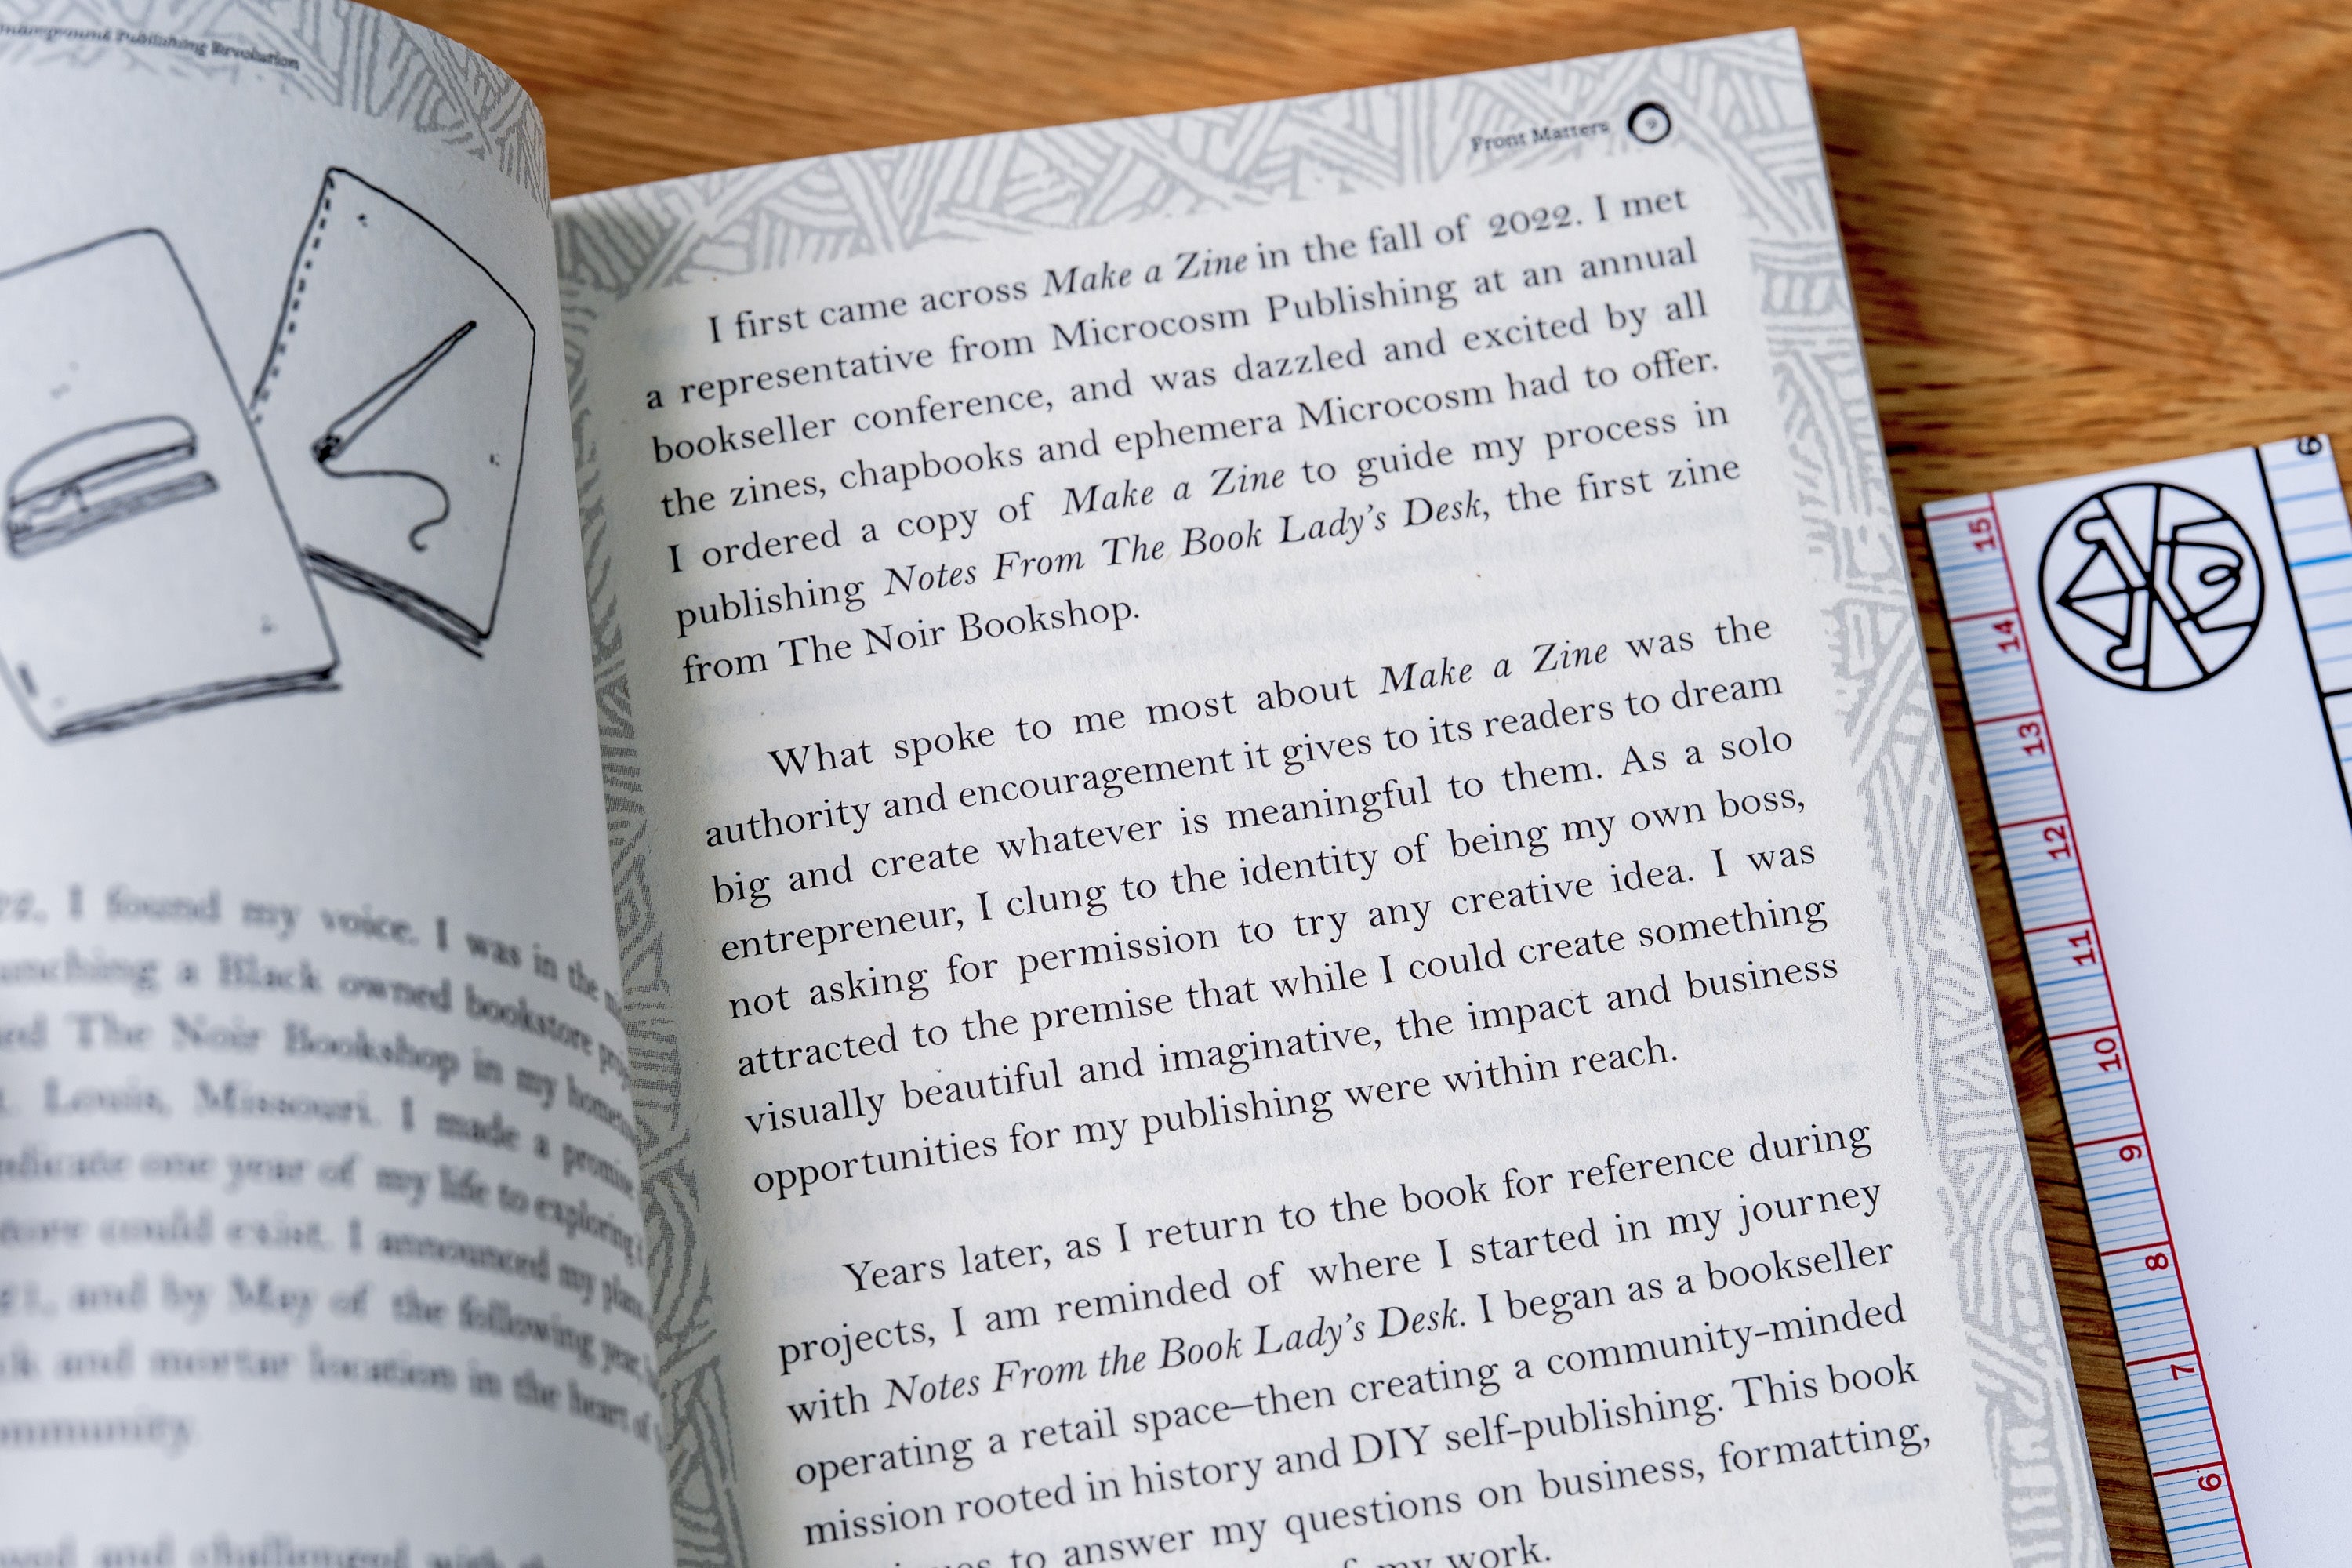 Underground Publishing Revolution
I found my voice. I was in the
a Black owned bookstore
The Noir Bookshop in my
Louis, Missouri. I made a promise
one year of my life to exploring
could exist. I announced my plan,
and by May of the following year,
and mortar location in the heart of
and challenged with
Front Matters 9
I first came across Make a Zine in the fall of 2022. I met
a representative from Microcosm Publishing at an annual
bookseller conference, and was dazzled and excited by all
the zines, chapbooks and ephemera Microcosm had to offer.
I ordered a copy of Make a Zine to guide my process in
publishing Notes From The Book Lady's Desk, the first zine
from The Noir Bookshop.
What spoke to me most about Make a Zine was the
authority and encouragement it gives to its readers to dream
big and create whatever is meaningful to them. As a solo
entrepreneur, I clung to the identity of being my own boss,
not asking for permission to try any creative idea. I was
attracted to the premise that while I could create something
visually beautiful and imaginative, the impact and business
opportunities for my publishing were within reach.
Years later, as I return to the book for reference during
projects, I am reminded of where I started in my journey
with Notes From the Book Lady's Desk. I began as a bookseller
operating a retail space–then creating a community-minded
mission rooted in history and DIY self-publishing. This book
to answer my questions on business, formatting,
my work.
15
14
13
12
11
10
9
8
7
6
6